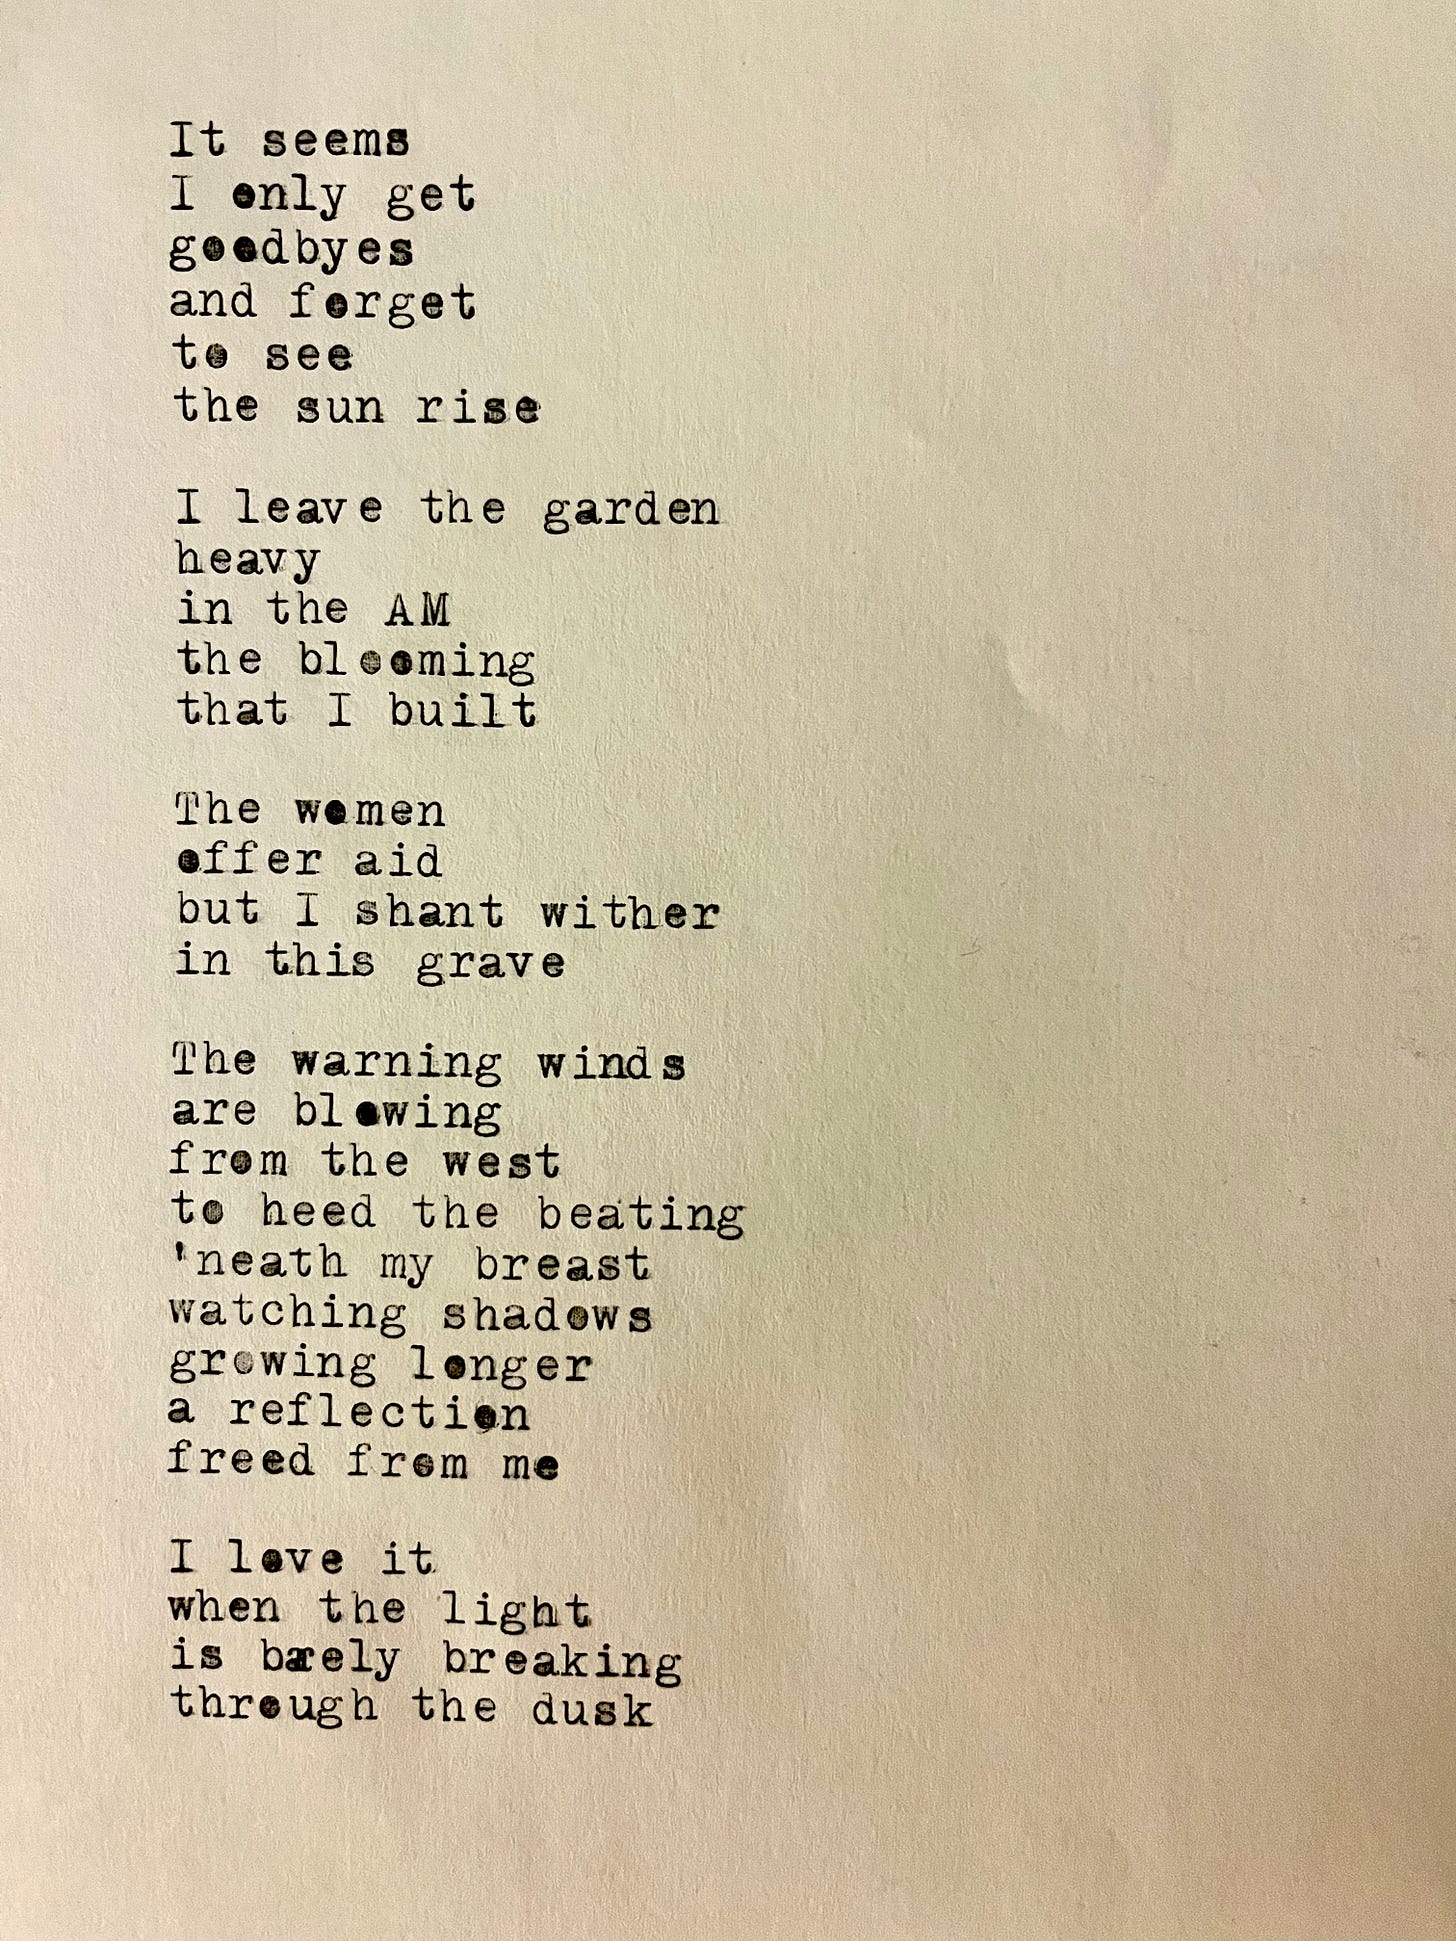 It seems
I only get
goodbyes
and forget
to see
the sun rise
I leave the garden
heavy
in the AM
the blooming
that I built
The women
offer aid
but I shant wither
in this grave
The warning winds
are blowing
from the west
to heed the beating
'neath my breast
watching shadows
growing longer
a reflection
freed from me
I love it
when the light
is barely breaking
through the dusk